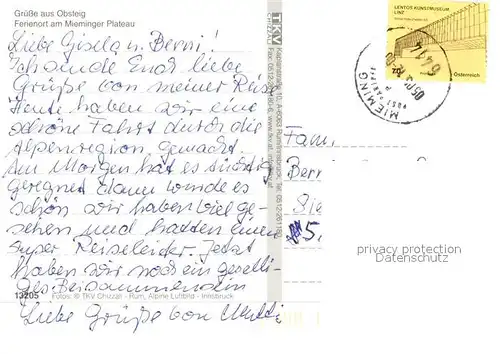 Grüße aus Obsteig
Ferienort am Mieminger Plateau
Liebe Gisela u. Berni!
Ich sende Euch liebe
Grüße von meiner Reise
Heute haben wir eine
schöne Fahrt durch die
Alpenregion gemacht.
Am Morgen hat es
geregnet dann wurde es
schön wir haben viel ge-
sehen und hatten einen
super Reiseleiter. Jetzt
haben wir noch ein geselli-
ges Beisammensein
13205
Fotos: © TKV Chizzali - Rum, Alpine Luftbild - Innsbruck
Liebe Grüße von
TKV
CHIZZALI
LENTOS KUNSTMUSEUM
LINZ
Österreich
MIEMING
6414
Fam.
Ber
5.
privacy protection
Datenschutz